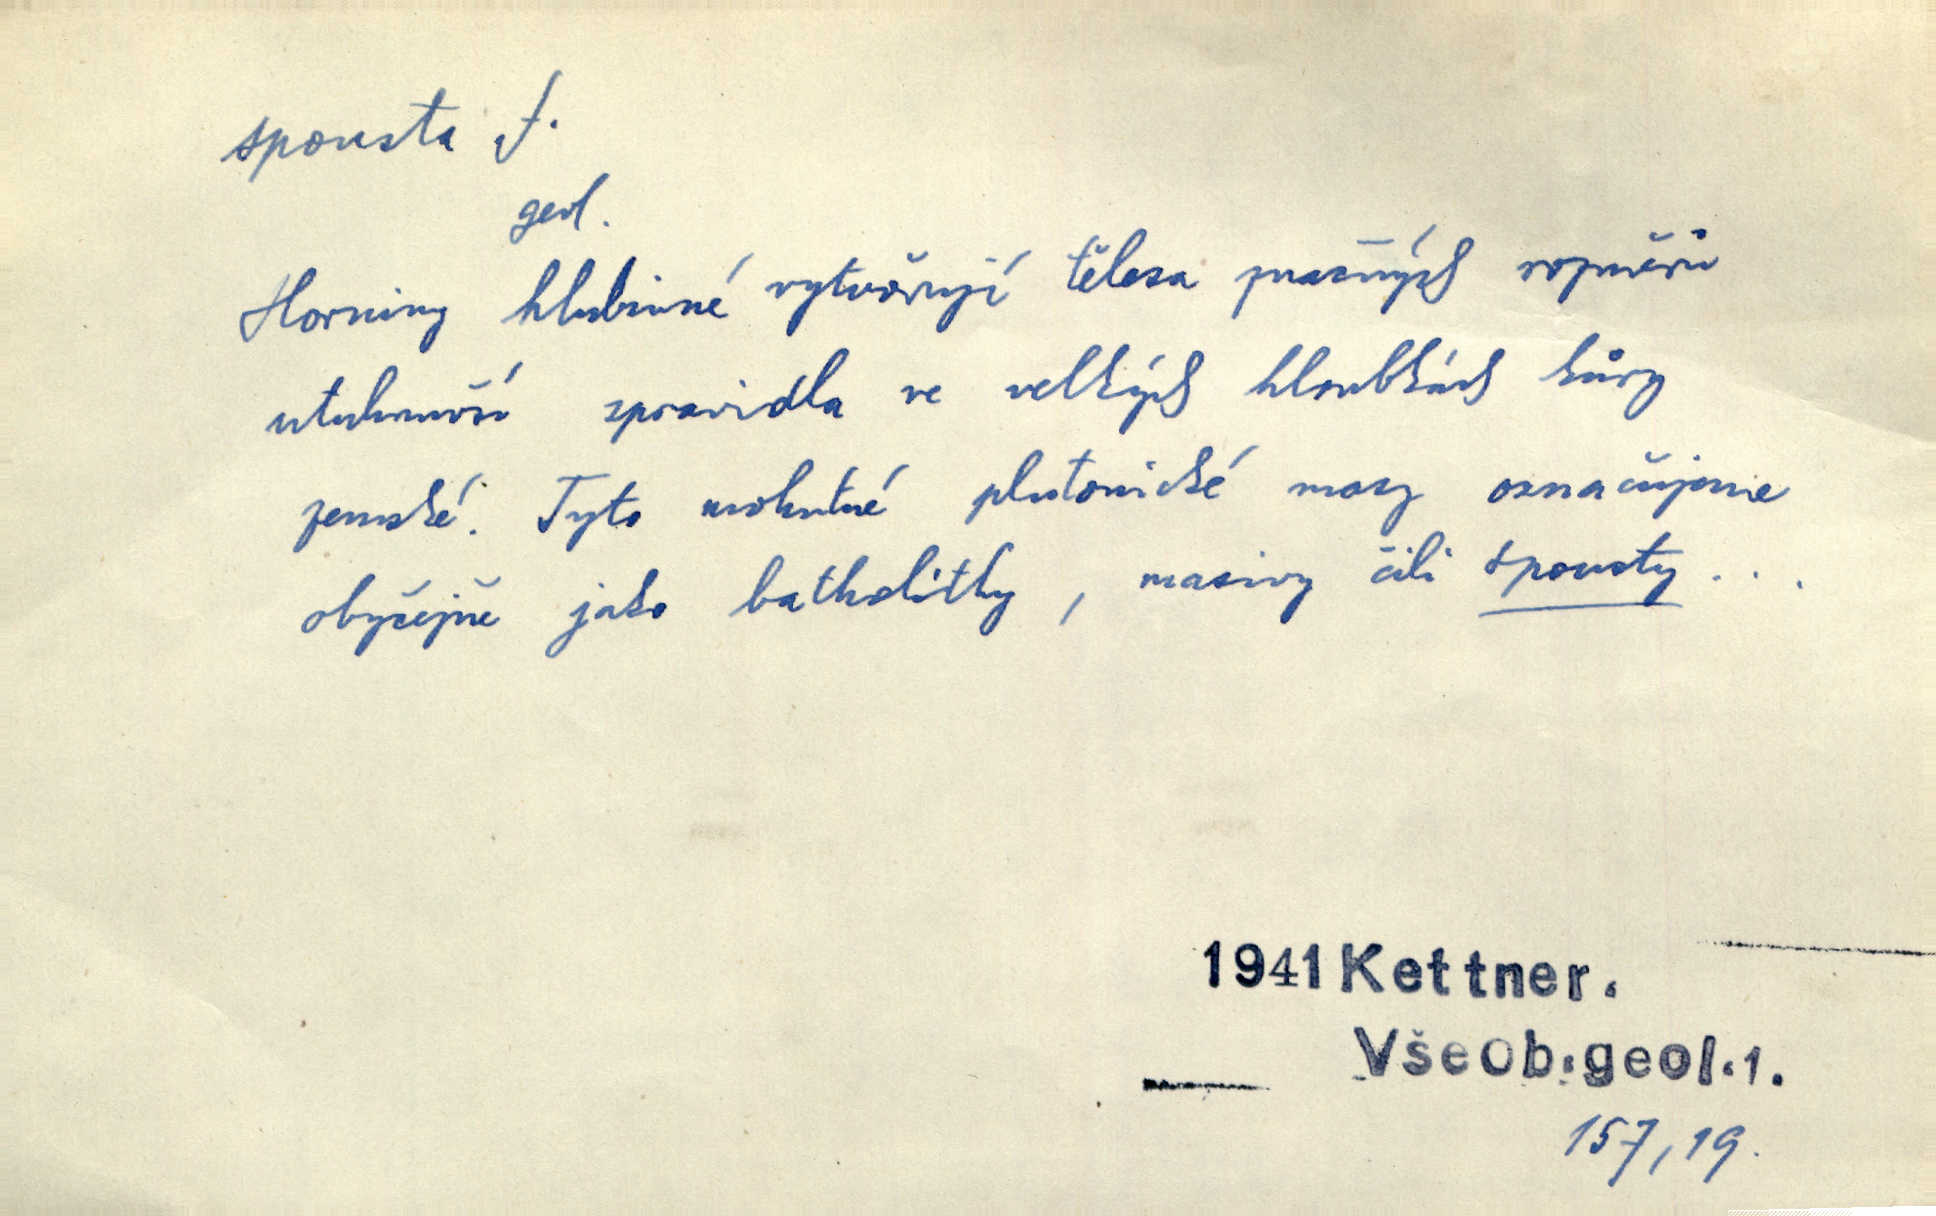 spousta f.
geol.
Horniny hlubinné vytvořují tělesa značných rozměrů
utuhnuvší zpravidla ve velkých hloubkách kůry
zemské. Tyto mohutné plutonické masy označujeme
obyčejně jako batholithy, masivy čili spousty...
1941 Kettner.
Všeob.geol.1.
157,19.